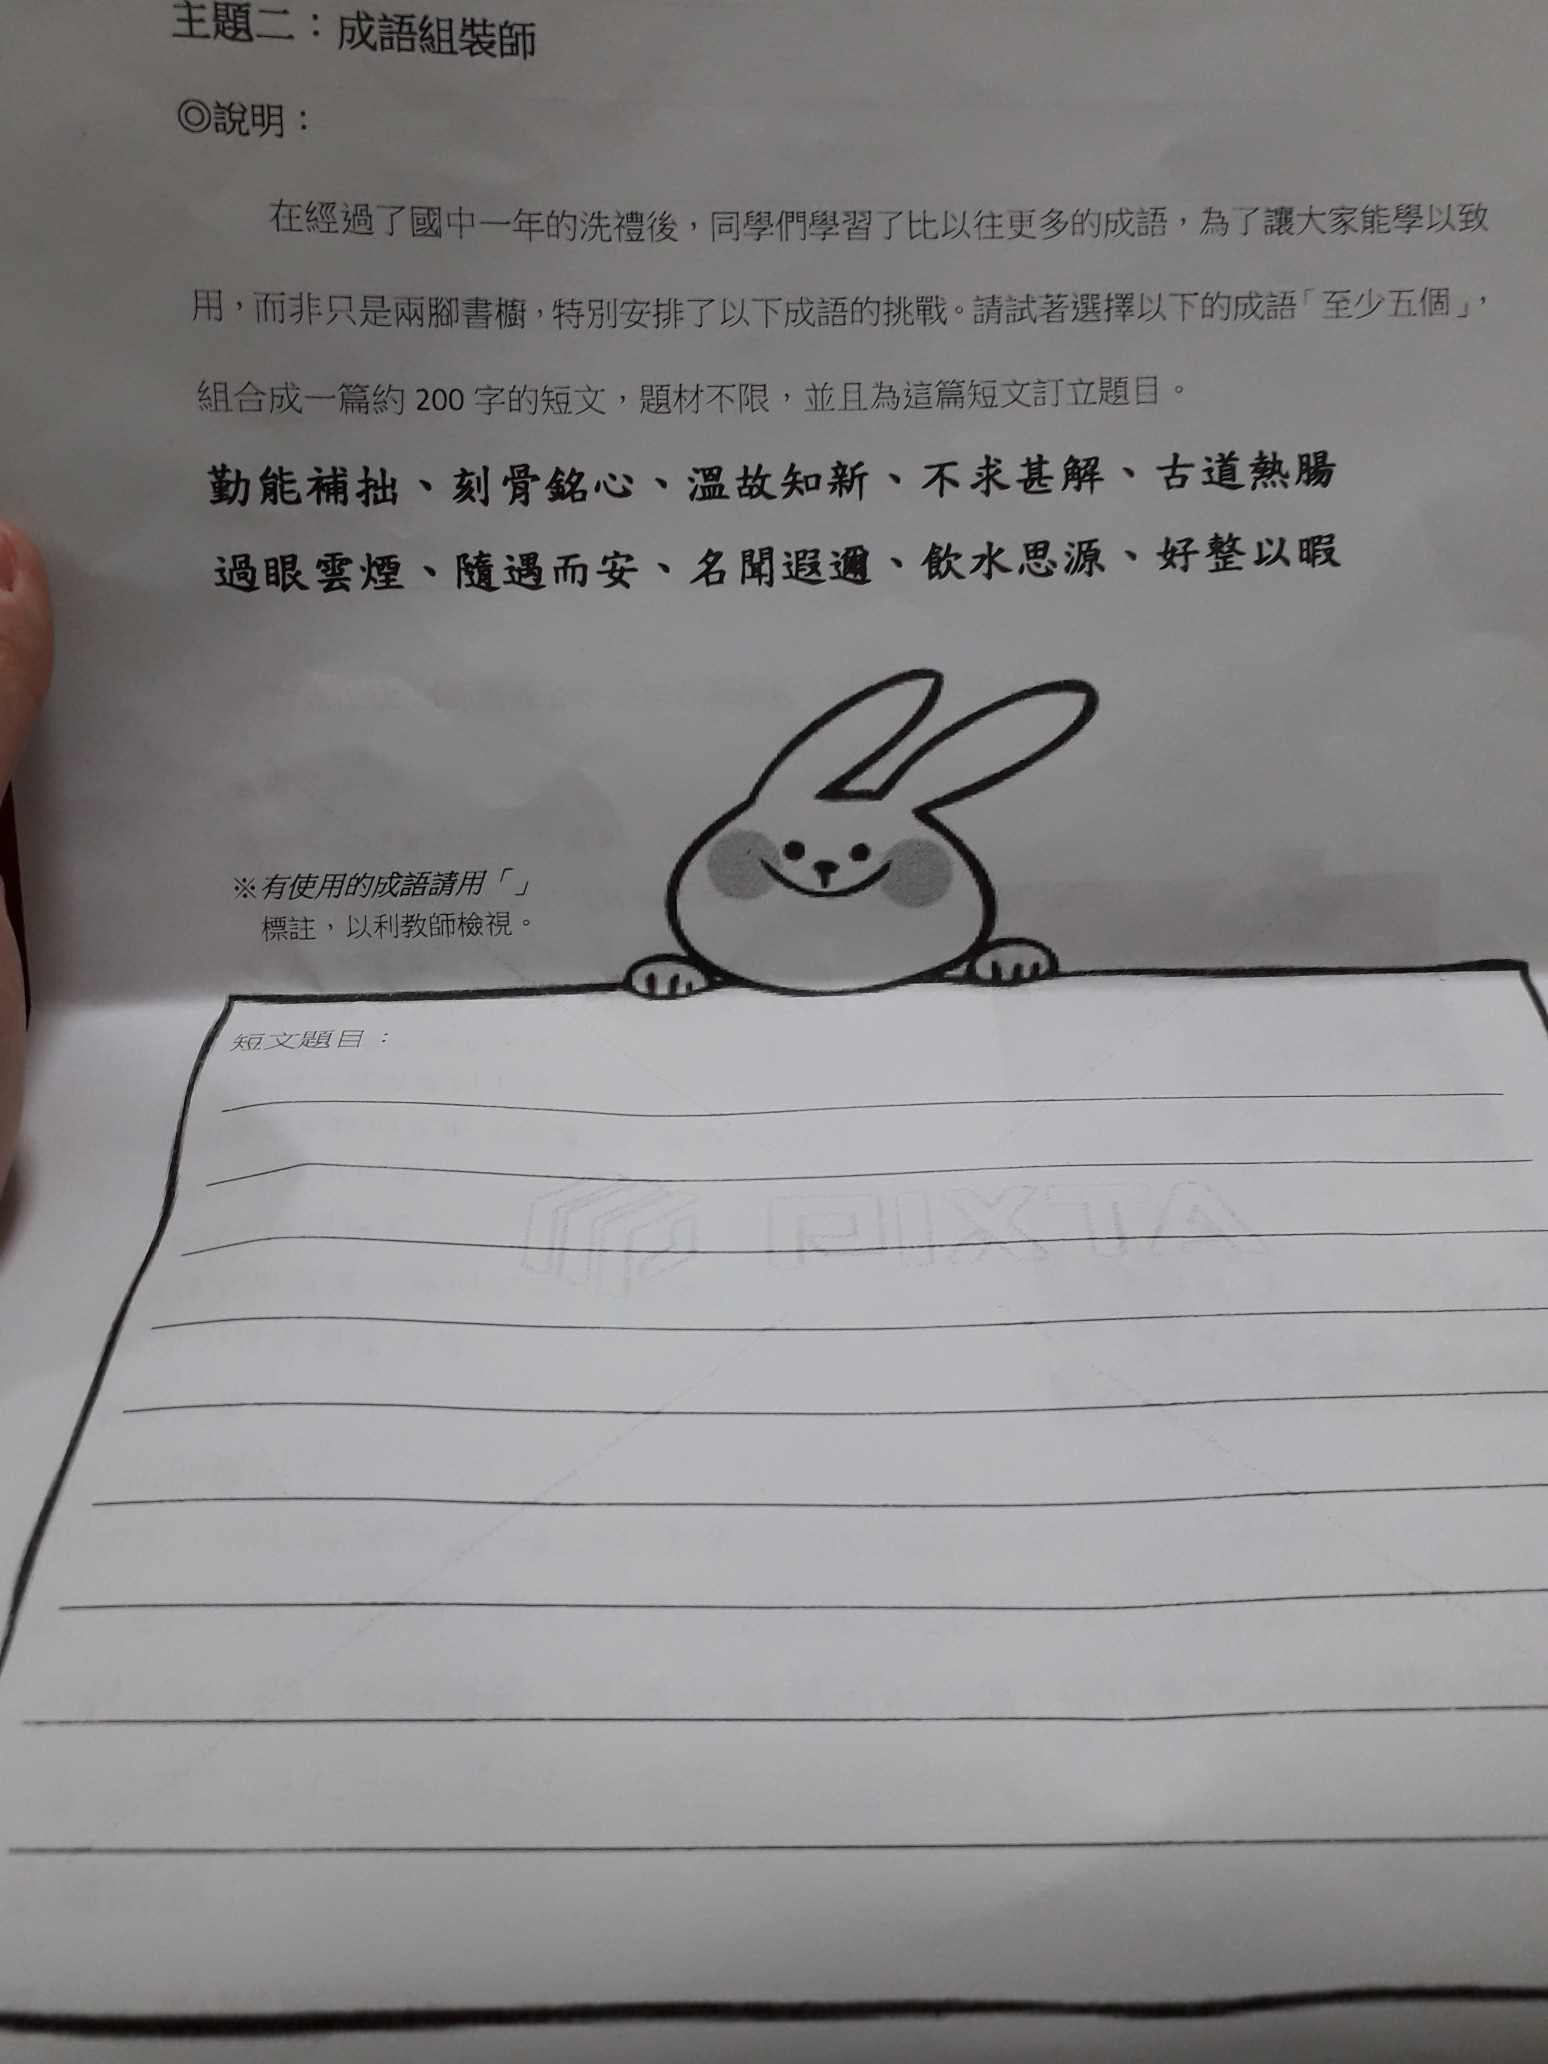 主題二：成語組裝師
◎說明：
在經過了國中一年的洗禮後，同學們學習了比以往更多的成語，為了讓大家能學以致
用，而非只是兩腳書櫥，特別安排了以下成語的挑戰。請試著選擇以下的成語「至少五個」，
組合成一篇約 200 字的短文，題材不限，並且為這篇短文訂立題目。
勤能補拙、刻骨銘心、溫故知新、不求甚解、古道熱腸
過眼雲煙、隨遇而安、名聞遐邇、飲水思源、好整以暇
※有使用的成語請用「」
標註，以利教師檢視。
短文題目：